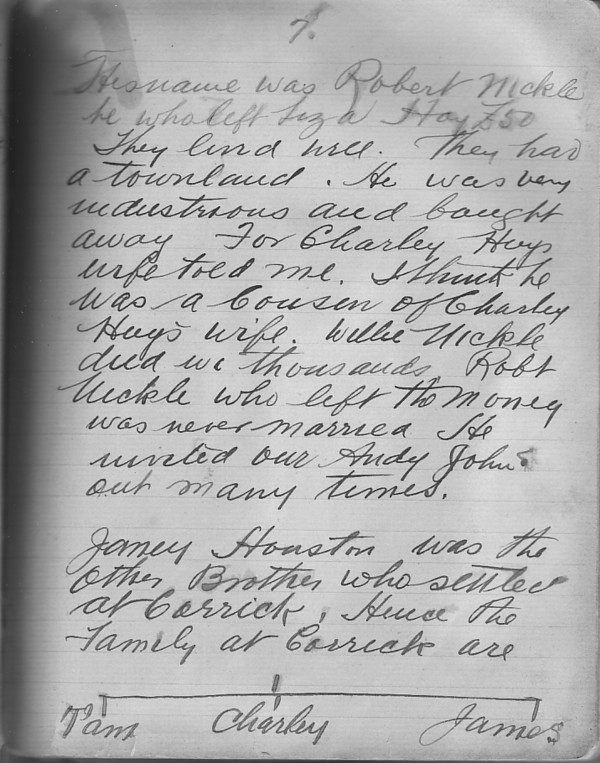 7.
His name was Robert Nickle
he who left Liza Hoy £50
They lived well. They had
a townland. He was very
industrious and bought
away For Charley Huys
wife told me. I think he
was a Cousin of Charley
Huys wife. Willie Nickle
died wc thousands. Robt
Nickle who left the money
was never married He
invited our Andy John
out many times.
Janey Houston was the
Other Brother who settled
at Corrick, Hence the
Family at Corrick are
Tam Charley James